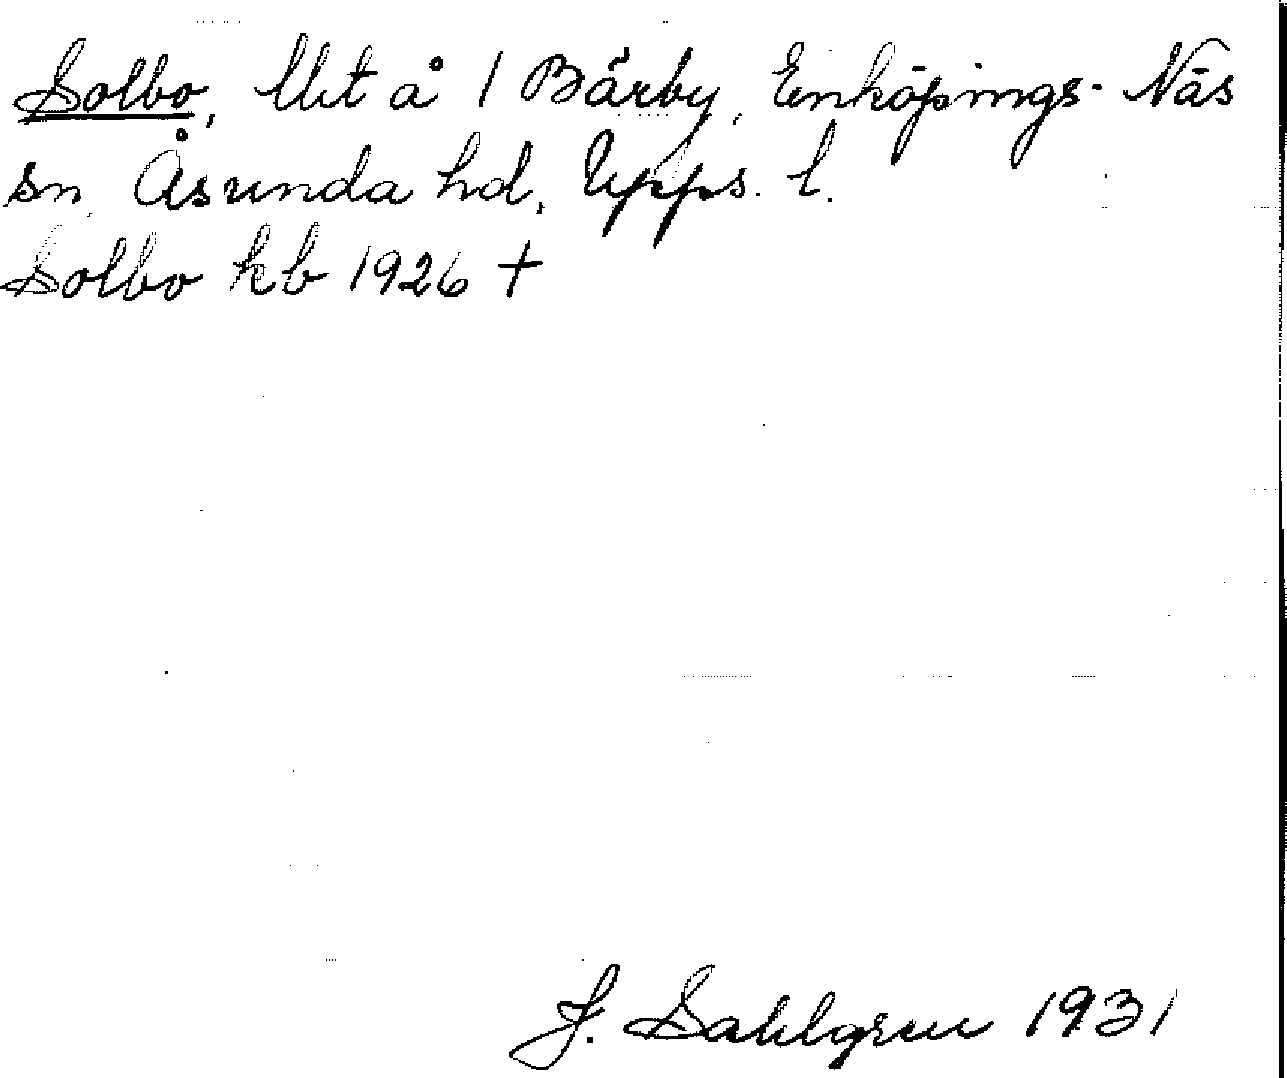 Solbo, lht å 1 Bärby, Enköpings-Näs
sn, Åsunda hd, Upps. l.
Solbo kb 1926 +
J. Sahlgren 1931